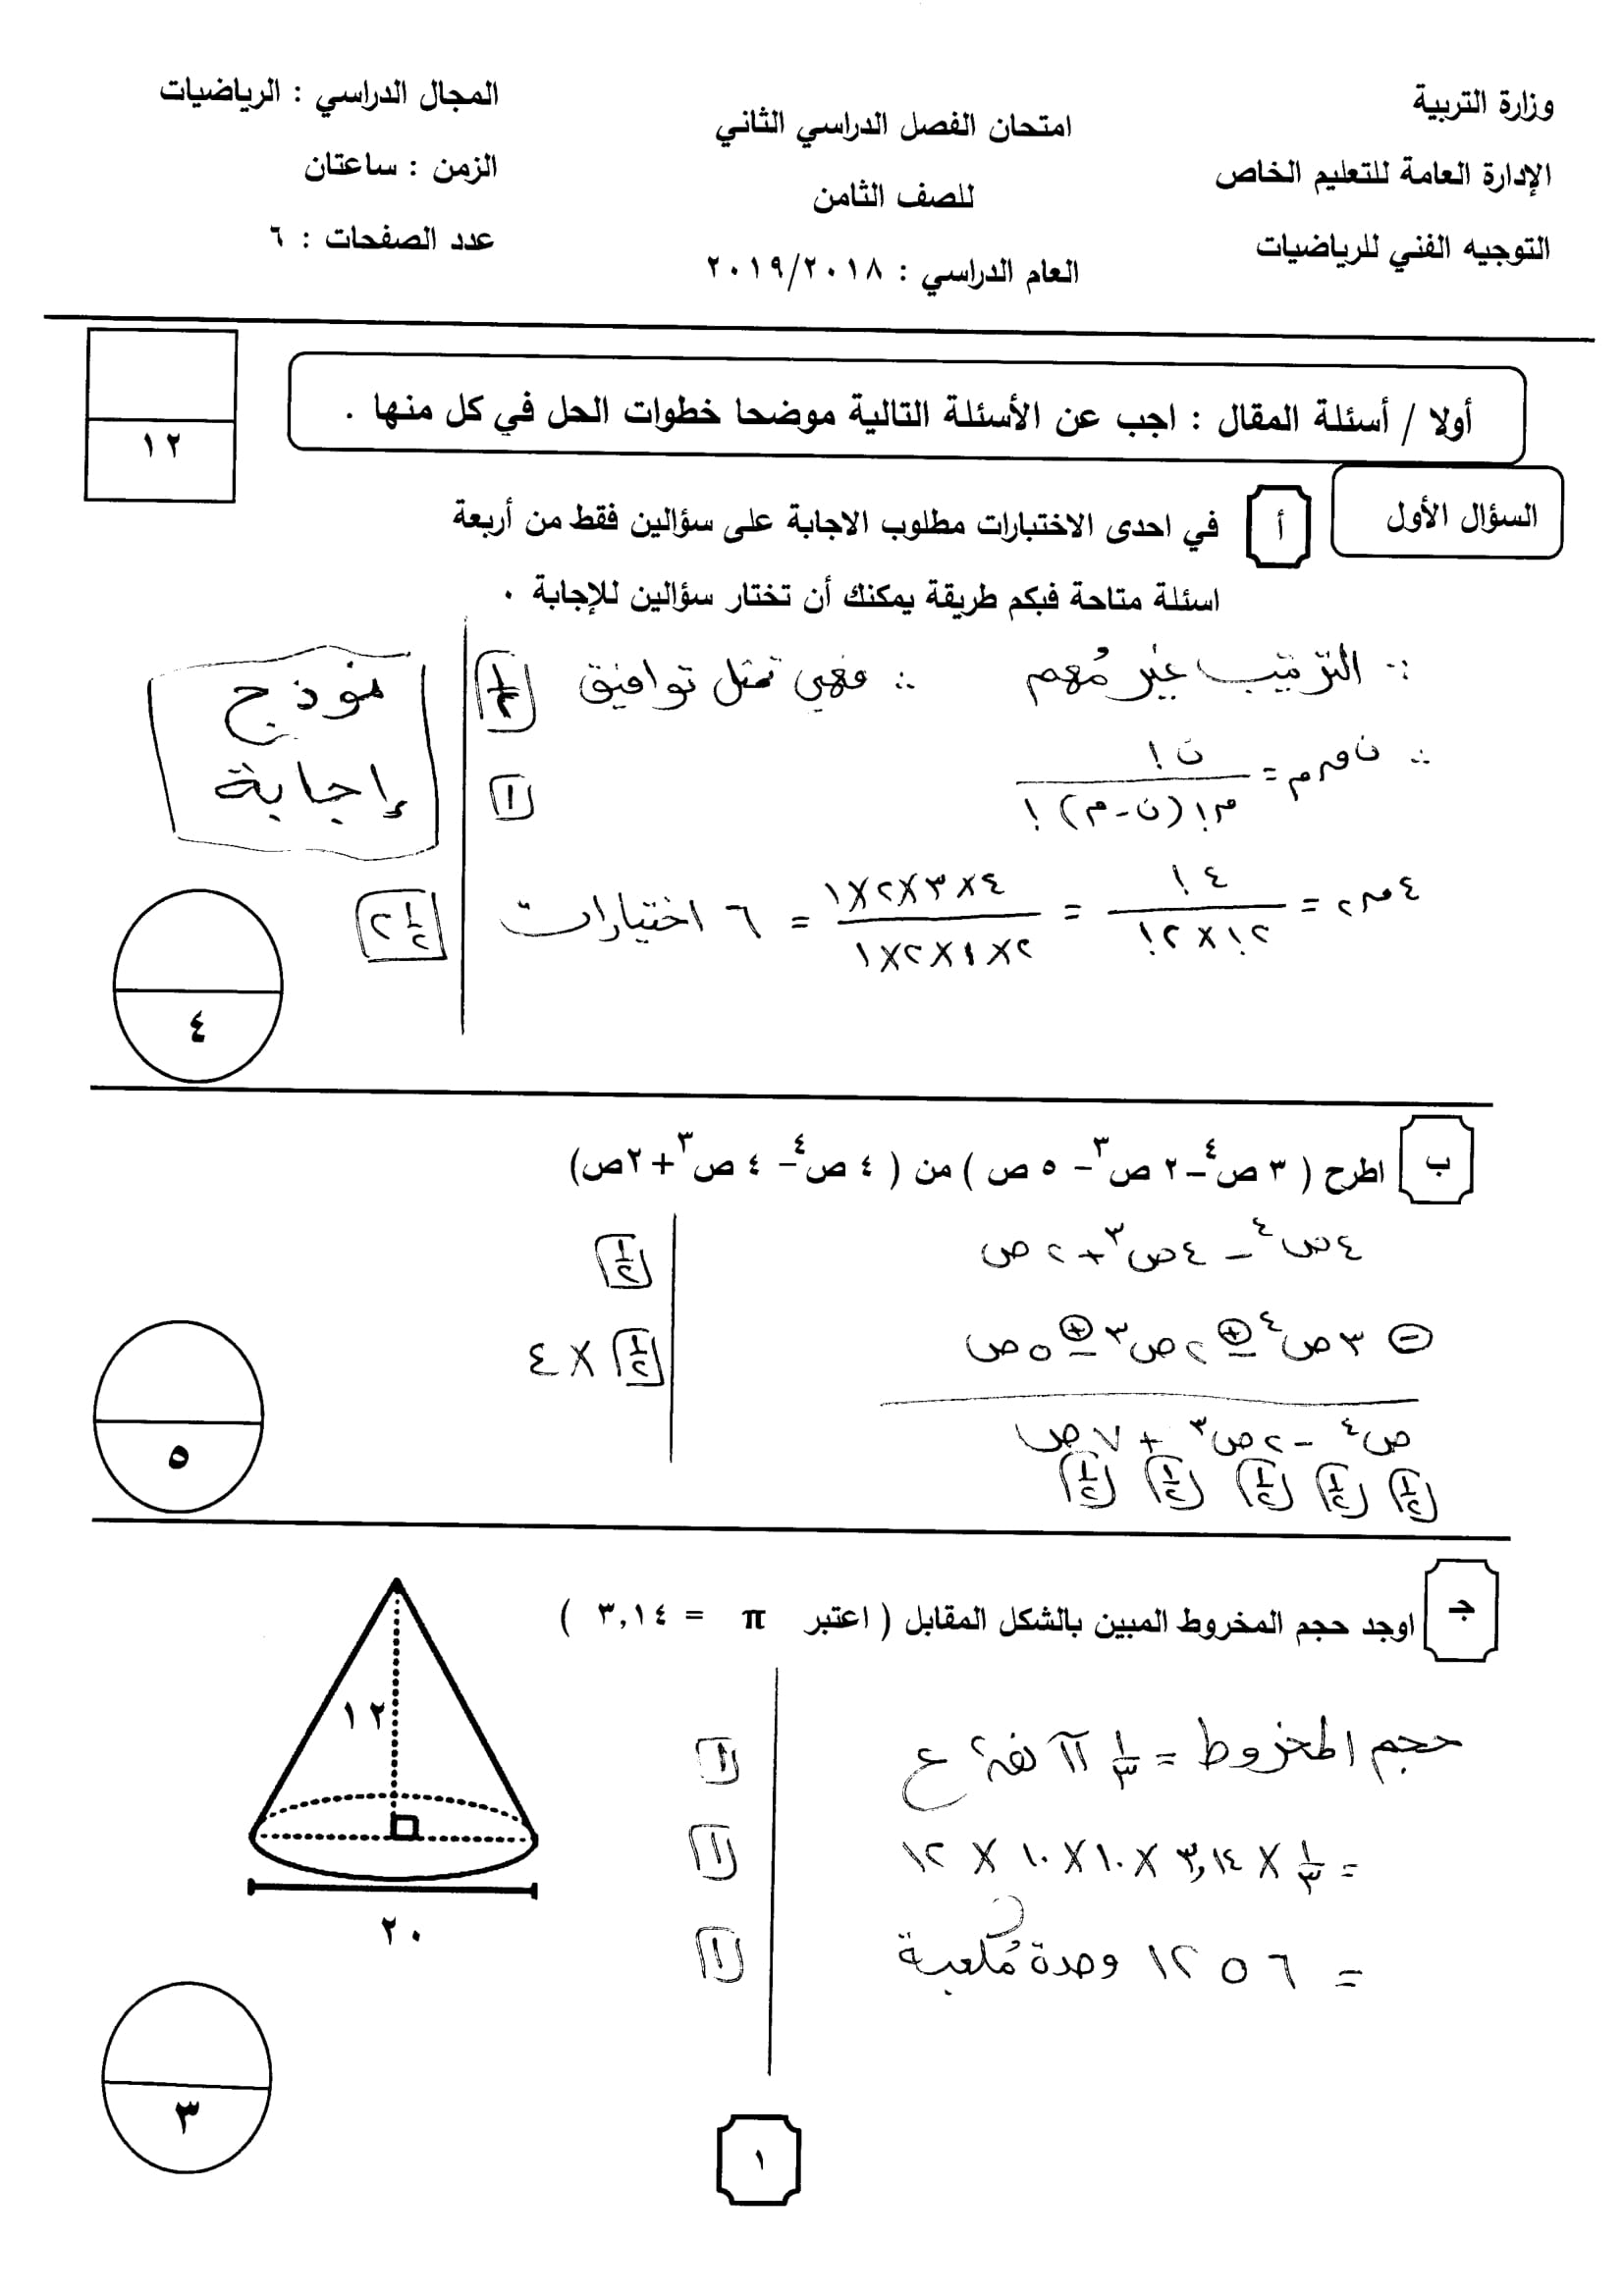 وزارة التربية
الإدارة العامة للتعليم الخاص
التوجيه الفني للرياضيات
امتحان الفصل الدراسي الثاني
للصف الثامن
العام الدراسي : ٢٠١٩/٢٠١٨
المجال الدراسي : الرياضيات
الزمن : ساعتان
عدد الصفحات : ٦
أولا / أسئلة المقال : اجب عن الأسئلة التالية موضحا خطوات الحل في كل منها .
١٢
السؤال الأول
أ في احدى الاختبارات مطلوب الاجابة على سؤالين فقط من أربعة
اسئلة متاحة فبكم طريقة يمكنك أن تختار سؤالين للإجابة ٠
∵ الترتيب غير مُهم ∴ فهي تمثل توافيق ١/٢
نموذج
إجابة
∴ ن ق م = ن! / م! (ن-م)! ١
٤ ق ٢ = ٤! / ٢! × ٢! = ٤×٣×٢×١ / ٢×١×٢×١ = ٦ اختيارات ٢ ١/٢
٤
ب اطرح ( ٣ ص⁴ – ٢ ص³ – ٥ ص ) من ( ٤ ص⁴ – ٤ ص³ + ٢ص)
٤ص⁴ – ٤ص³ + ٢ص ١/٢
⊖ ٣ص⁴ ⊕ ٢ص³ ⊕ ٥ص ١/٢ × ٤
ص⁴ – ٢ص³ + ٧ص
١/٢ ١/٢ ١/٢ ١/٢ ١/٢
٥
ج اوجد حجم المخروط المبين بالشكل المقابل ( اعتبر π = ٣,١٤ )
١٢
٢٠
حجم المخروط = ١/٣ π نق² ع ١
= ١/٣ × ٣,١٤ × ١٠ × ١٠ × ١٢ ١
= ١٢٥٦ وحدة مُكعبة ١
٣
١